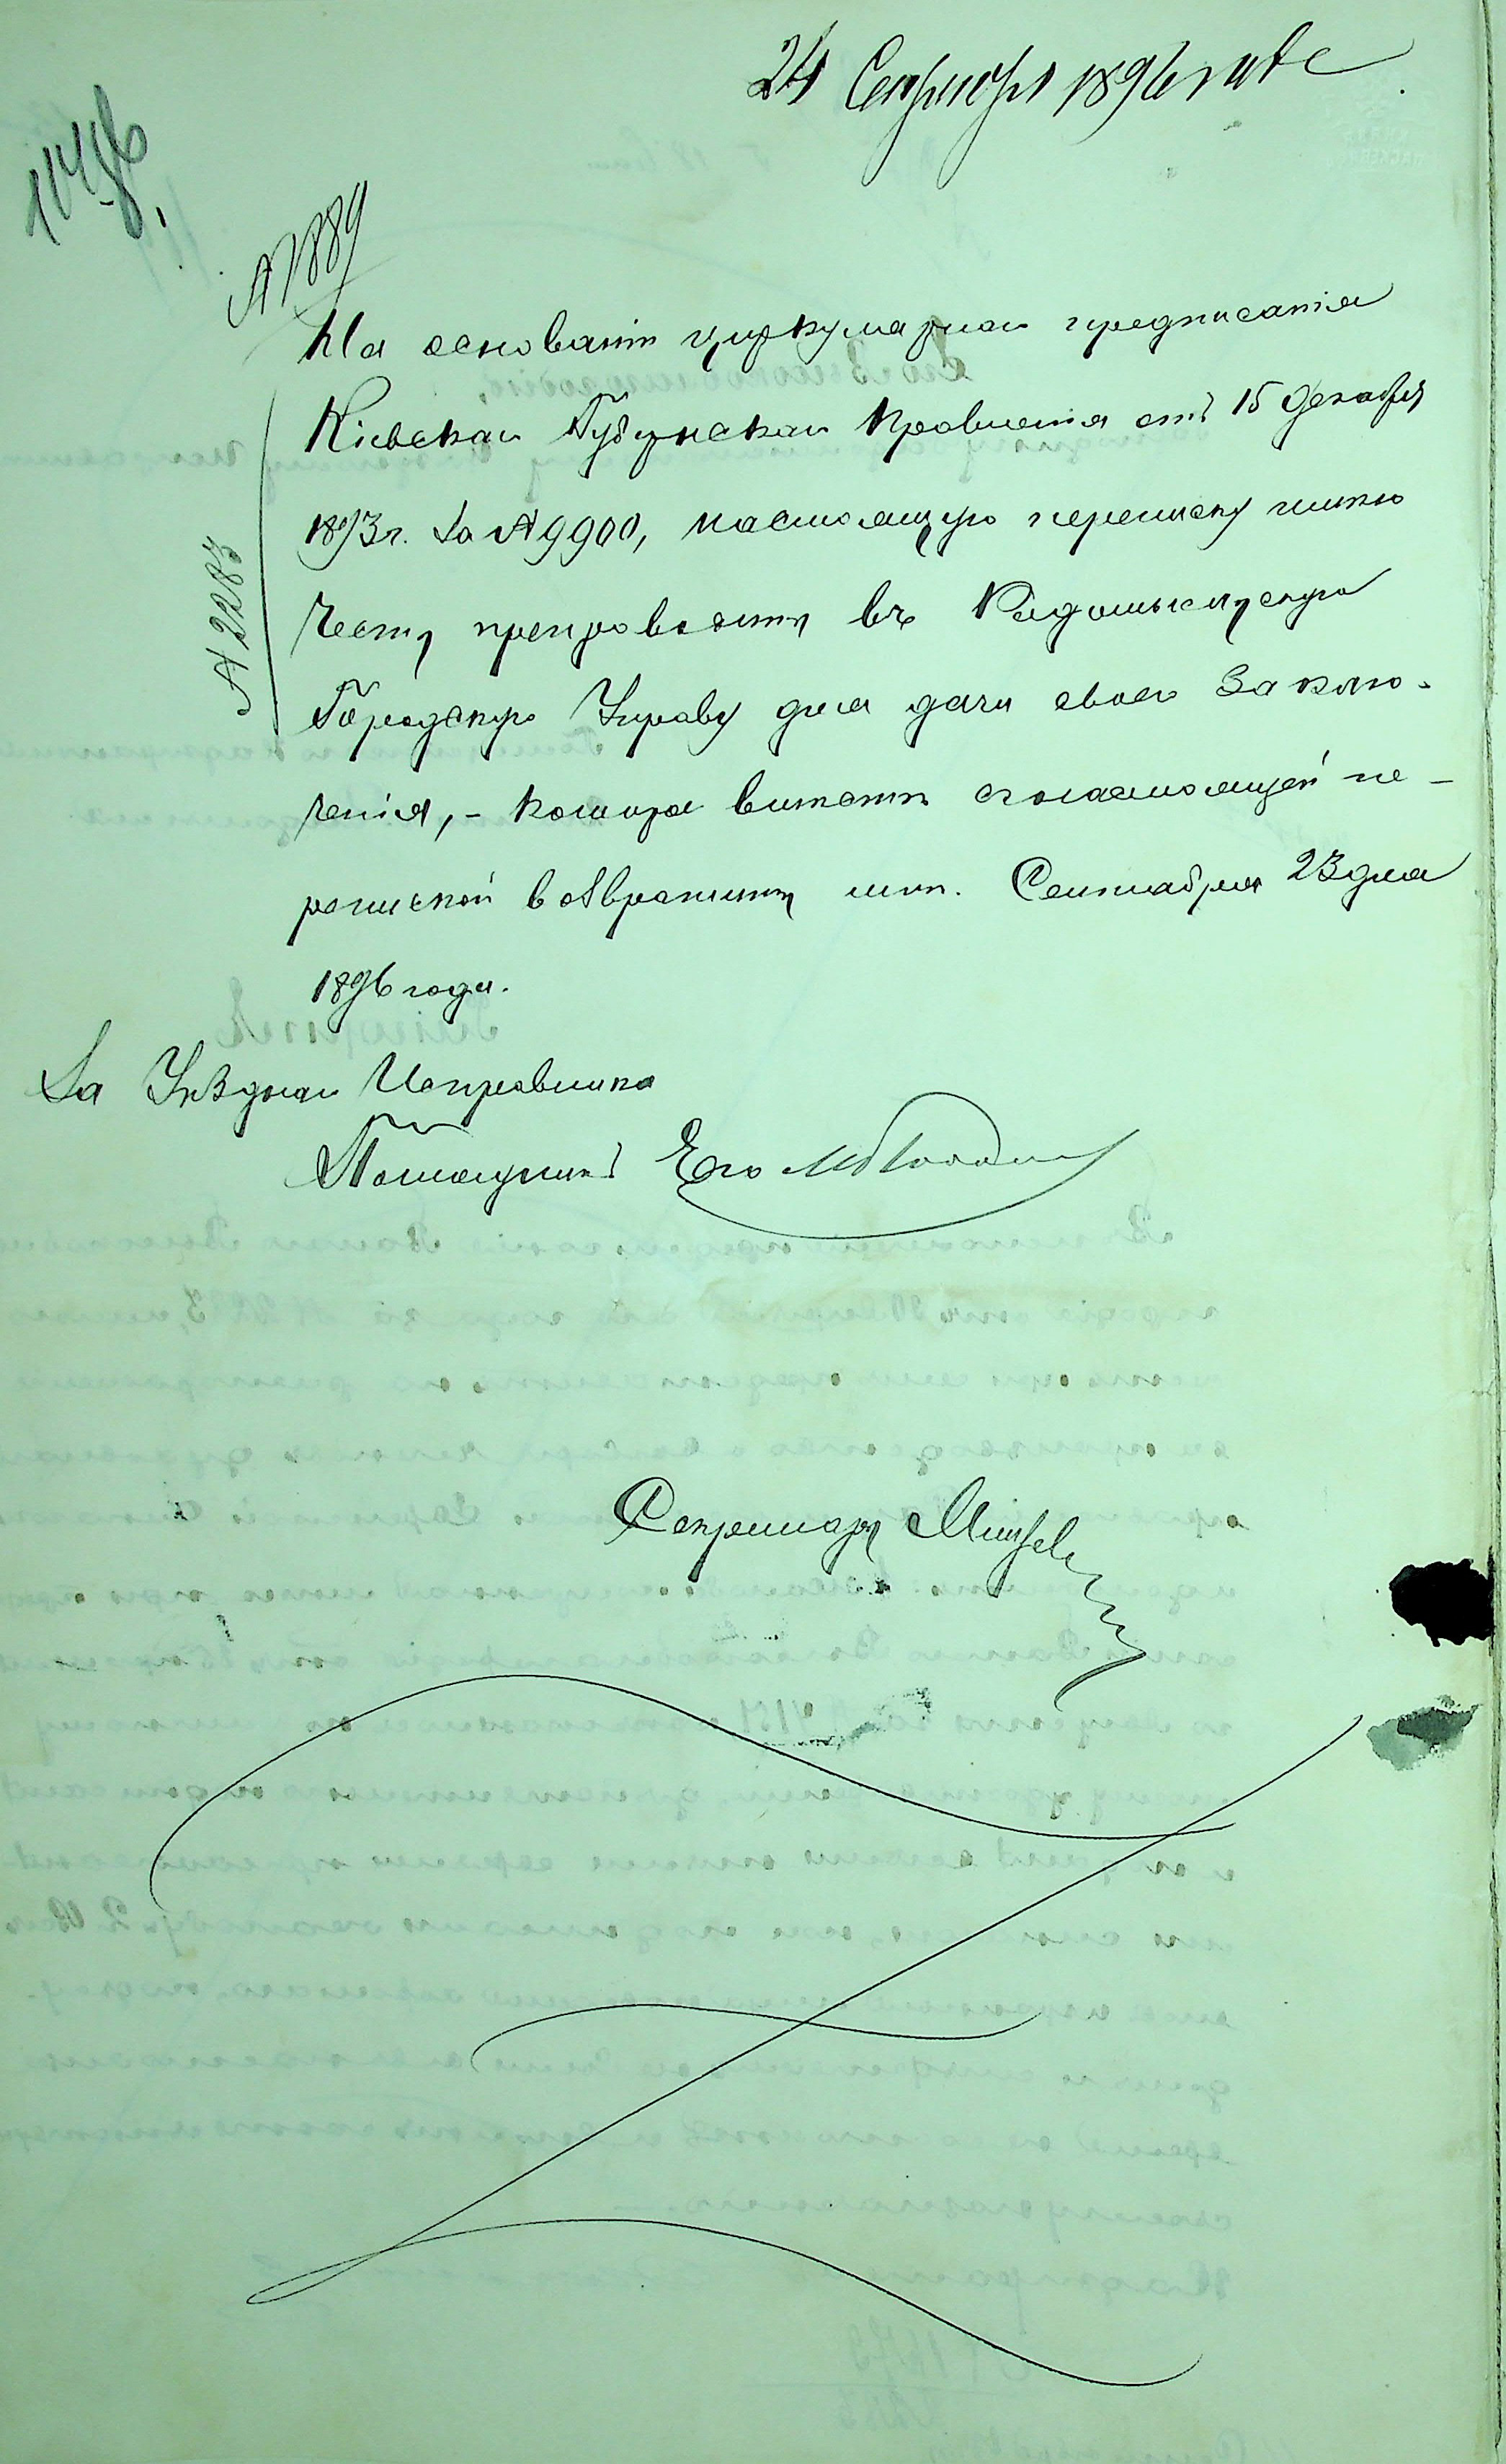 24 Сентября 1896 года
11486
№ 1889
На основаніи циркулярнаго предписанія
Кіевскаго Губернскаго Правленія отъ 15 Декабря
1893 г. За № 9900, настоящую переписку имѣю
честь препроводить въ Радомысльскую
Городскую Управу для дачи своего заклю-
ченія, - которое вмѣстѣ съ настоящей пе-
репиской возвратить мнѣ. Сентября 23 дня
1896 года.
№ 2283
За Уѣзднаго Исправника
Помощникъ Его
Секретарь